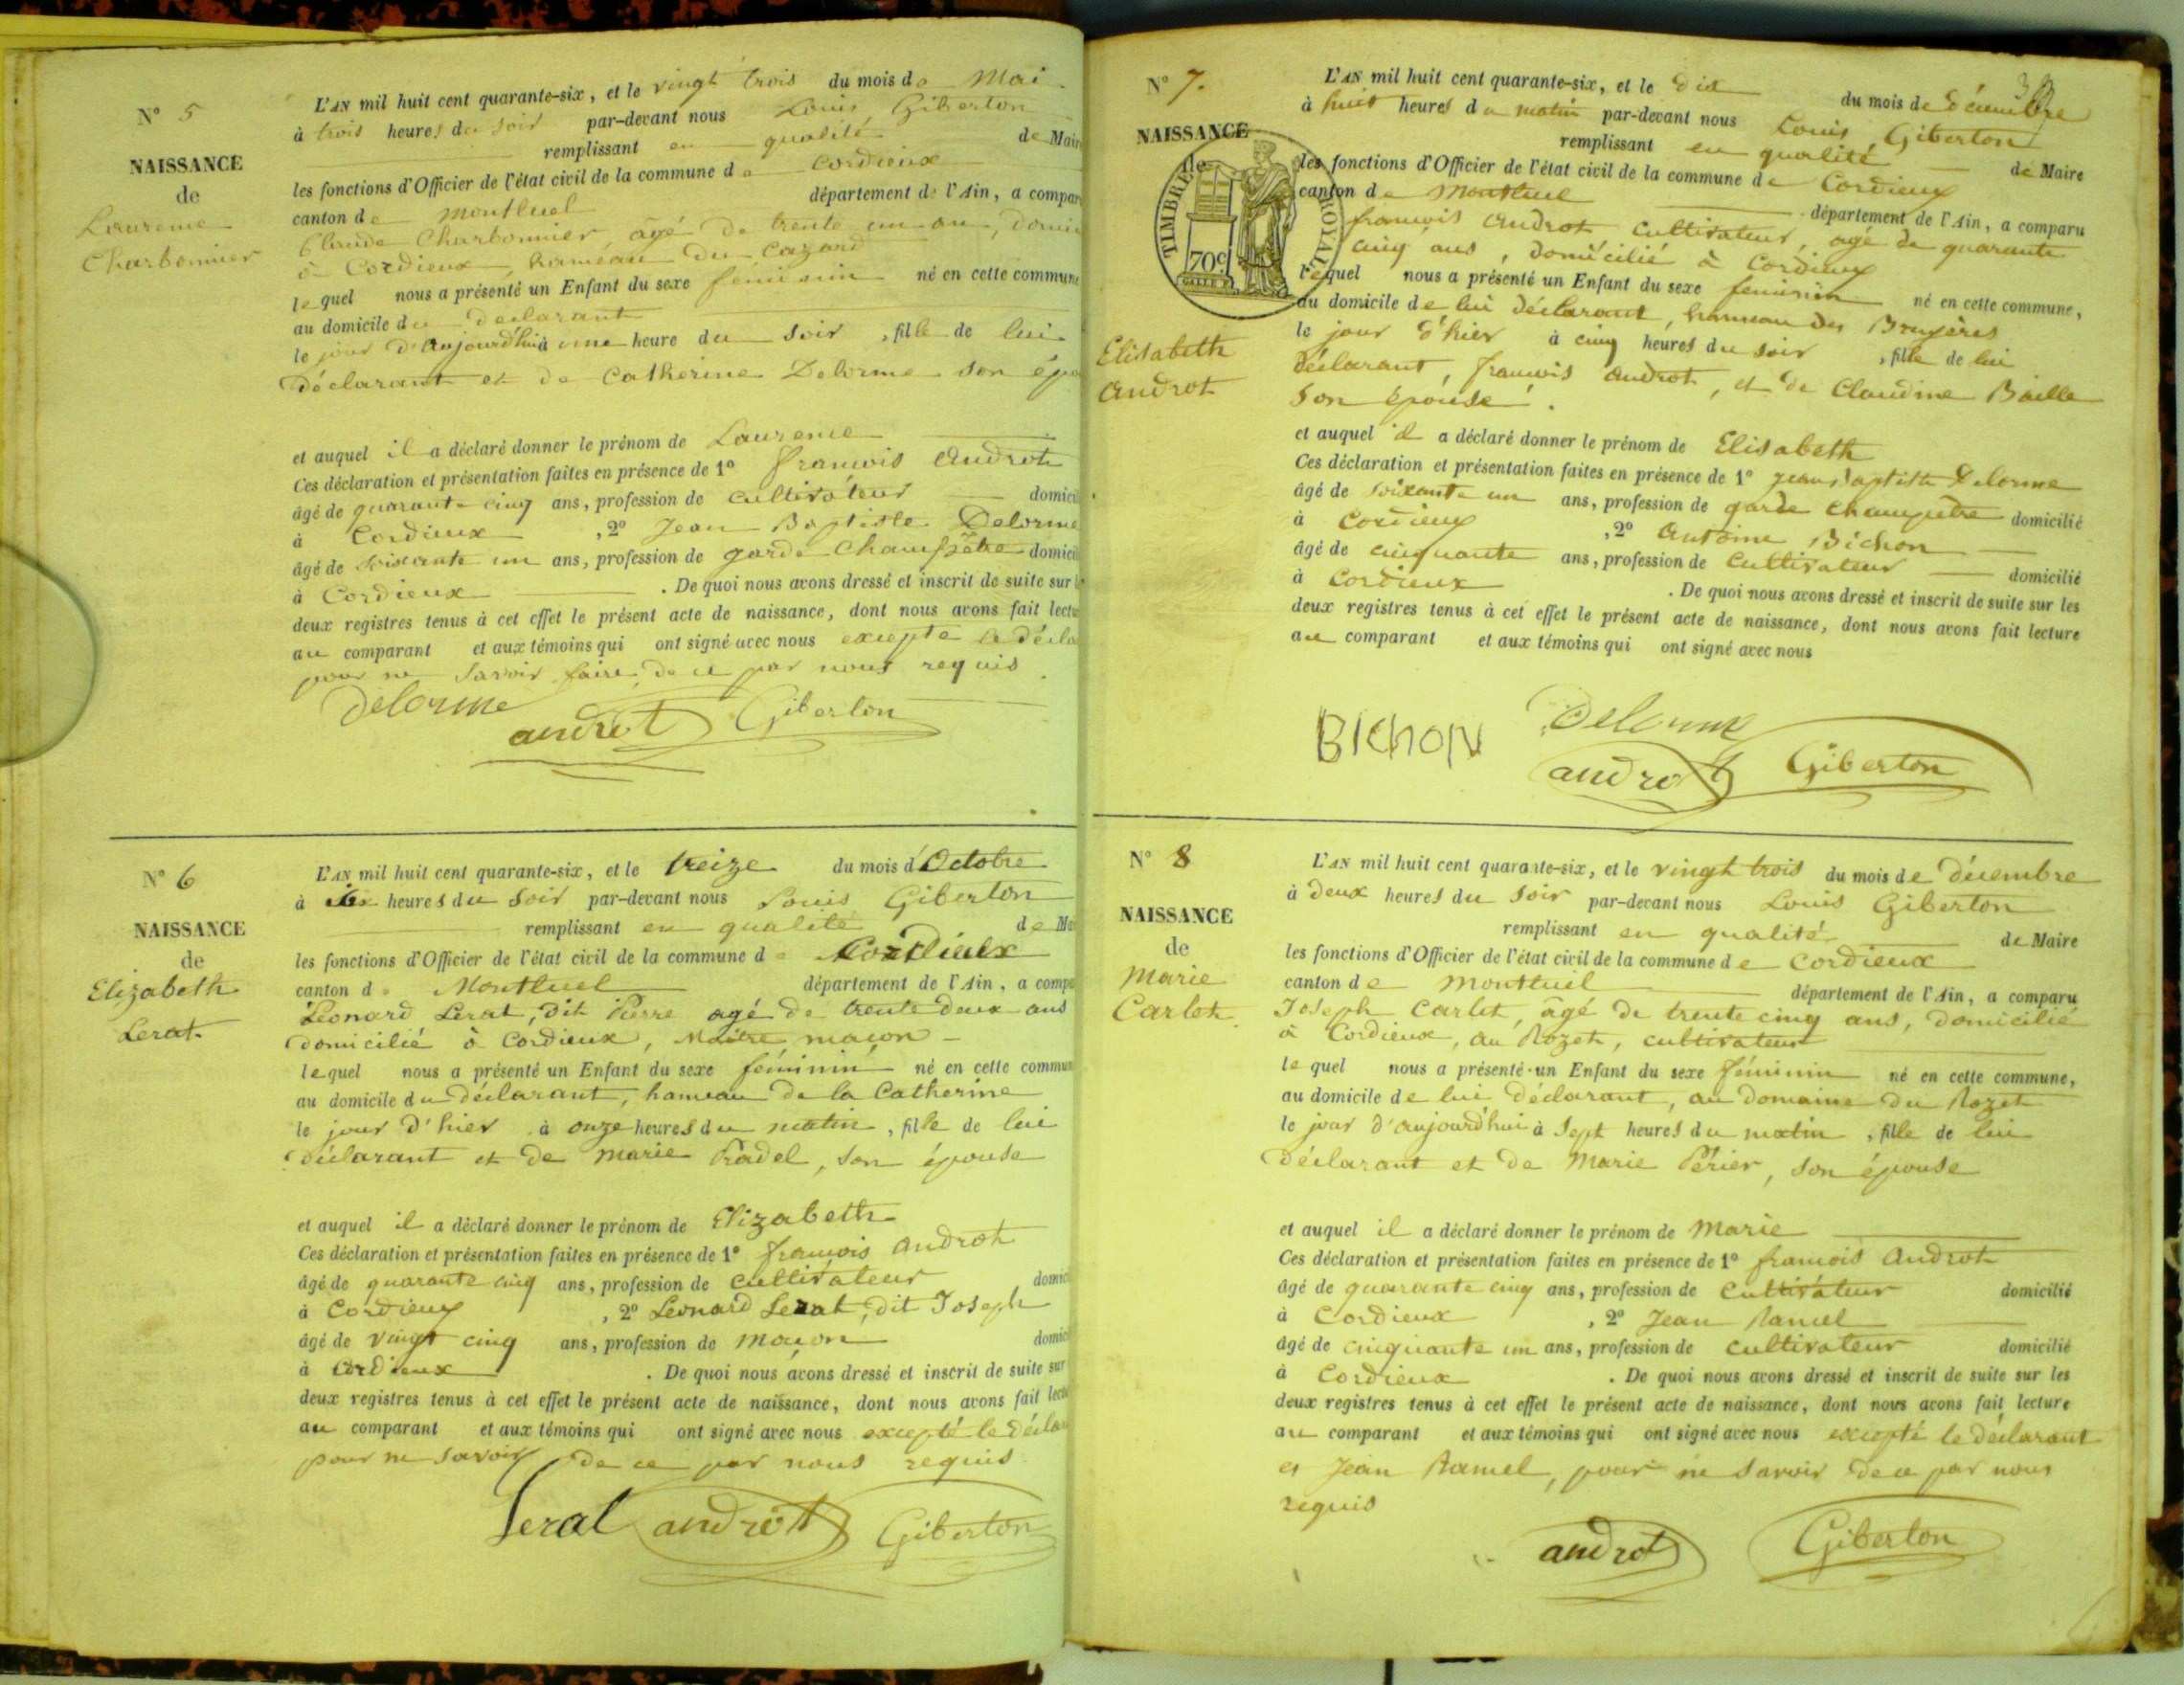 N° 5
NAISSANCE
de
Laurence
Charbonnier
L'AN mil huit cent quarante-six, et le vingt trois du mois de Mai
à trois heures du soir par-devant nous Louis Giberton
remplissant en qualité de Maire
les fonctions d'Officier de l'état civil de la commune de Cordieux
canton de Montluel département de l'Ain, a compar
Claude Charbonnier, âgé de trente un an, domi
à Cordieux, hameau du Cazard
lequel nous a présenté un Enfant du sexe féminin né en cette commune
au domicile du déclarant
le jour d'aujourd'hui à une heure du soir, fille de lui
déclarant et de Catherine Delorme son épo
et auquel il a déclaré donner le prénom de Laurence
Ces déclaration et présentation faites en présence de 1° françois Androt
âgé de quarante cinq ans, profession de cultivateur domici
à Cordieux, 2° Jean Baptiste Delorme
âgé de soixante un ans, profession de garde Champêtre domici
à Cordieux. De quoi nous avons dressé et inscrit de suite sur l
deux registres tenus à cet effet le présent acte de naissance, dont nous avons fait lectu
au comparant et aux témoins qui ont signé avec nous excepté le décla
pour ne savoir faire de ce par nous requis
Delorme
androt Giberton
N° 6
NAISSANCE
de
Elizabeth
Lerat.
L'AN mil huit cent quarante-six, et le treize du mois d'Octobre
à six heures du soir par-devant nous Louis Giberton
remplissant en qualité de Ma
les fonctions d'Officier de l'état civil de la commune d Cordieux
canton d Montluel département de l'Ain, a compa
Léonard Lerat, dit Pierre agé de trente deux ans
domicilié à Cordieux, Maître maçon
lequel nous a présenté un Enfant du sexe féminin né en cette commun
au domicile du déclarant, hameau de la Catherine
le jour d'hier à onze heures du matin, fille de lui
déclarant et de marie Pradel, son épouse
et auquel il a déclaré donner le prénom de Elizabeth
Ces déclaration et présentation faites en présence de 1° françois Androt
âgé de quarante cinq ans, profession de cultivateur domici
à Cordieux, 2° Léonard Lerat, dit Joseph
âgé de vingt cinq ans, profession de maçon domici
à Cordieux. De quoi nous avons dressé et inscrit de suite sur
deux registres tenus à cet effet le présent acte de naissance, dont nous avons fait lectu
au comparant et aux témoins qui ont signé avec nous excepté le décla
pour ne savoir de ce par nous requis
Lerat androt Giberton
N° 7.
NAISSANCE
de
TIMBRE ROYAL
70c
Elisabeth
Androt
L'AN mil huit cent quarante-six, et le dix du mois de décembre
à huit heures du matin par-devant nous Louis Giberton
remplissant en qualité de Maire
les fonctions d'Officier de l'état civil de la commune de Cordieux
canton de Montluel département de l'Ain, a comparu
françois Androt cultivateur, agé de quarante
cinq ans, domicilié à Cordieux
lequel nous a présenté un Enfant du sexe féminin né en cette commune,
au domicile de lui déclarant, hameau des Bruyères
le jour d'hier à cinq heures du soir, fille de lui
déclarant, françois Androt, et de Claudine Baille
son épouse.
et auquel il a déclaré donner le prénom de Elisabeth
Ces déclaration et présentation faites en présence de 1° jean baptiste Delorme
âgé de soixante un ans, profession de garde champêtre domicilié
à Cordieux, 2° Antoine Bichon
âgé de cinquante ans, profession de Cultivateur domicilié
à Cordieux. De quoi nous avons dressé et inscrit de suite sur les
deux registres tenus à cet effet le présent acte de naissance, dont nous avons fait lecture
au comparant et aux témoins qui ont signé avec nous
BIChON Delorme
androt Giberton
N° 8
NAISSANCE
de
Marie
Carlot
L'AN mil huit cent quarante-six, et le vingt trois du mois de décembre
à deux heures du soir par-devant nous Louis Giberton
remplissant en qualité de Maire
les fonctions d'Officier de l'état civil de la commune de Cordieux
canton de Montluel département de l'Ain, a comparu
Joseph Carlot, âgé de trente cinq ans, domicilié
à Cordieux, au Rozet, cultivateur
lequel nous a présenté un Enfant du sexe féminin né en cette commune,
au domicile de lui déclarant, au domaine du Rozet
le jour d'aujourd'hui à sept heures du matin, fille de lui
déclarant et de Marie Périer, son épouse
et auquel il a déclaré donner le prénom de Marie
Ces déclaration et présentation faites en présence de 1° françois Androt
âgé de quarante cinq ans, profession de Cultivateur domicilié
à Cordieux, 2° Jean Ramel
âgé de cinquante un ans, profession de cultivateur domicilié
à Cordieux. De quoi nous avons dressé et inscrit de suite sur les
deux registres tenus à cet effet le présent acte de naissance, dont nous avons fait lecture
au comparant et aux témoins qui ont signé avec nous excepté le déclarant
et Jean Ramel, pour ne savoir de ce par nous
requis
androt Giberton